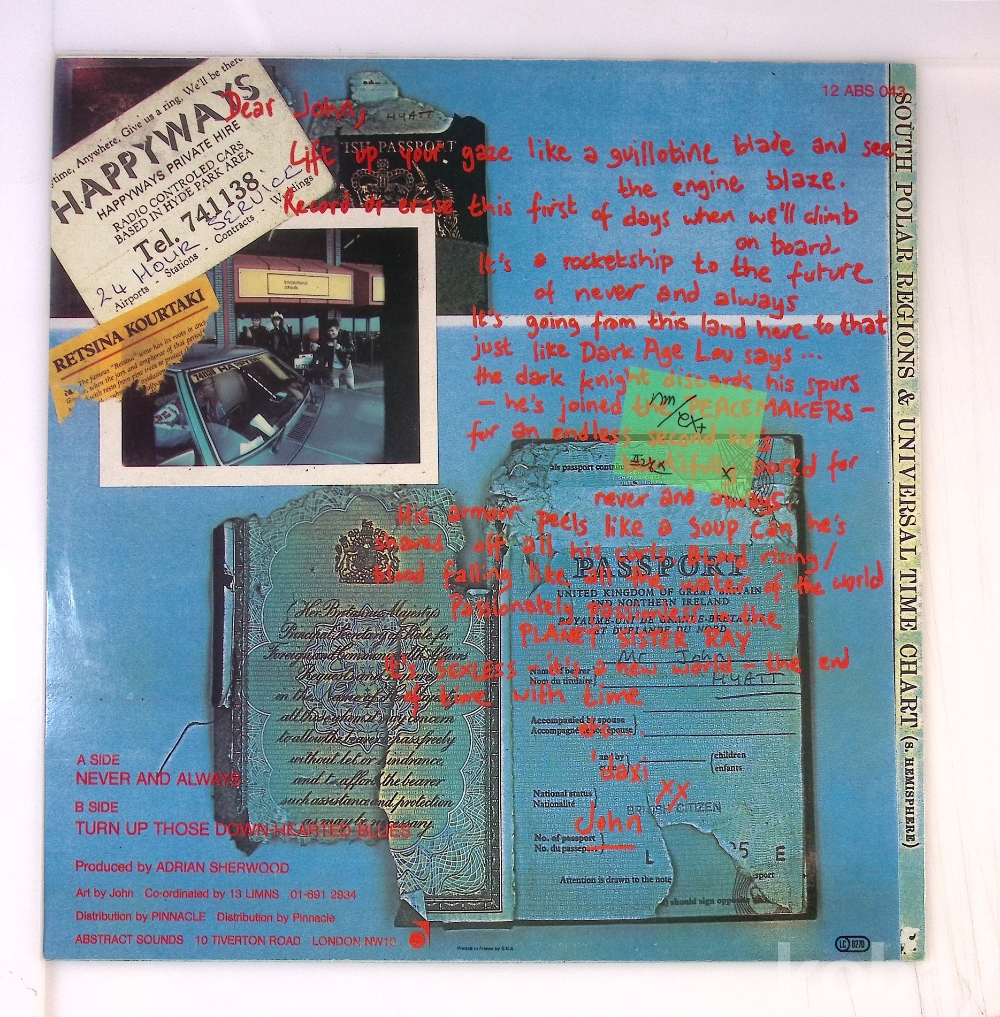 12 ABS 043
time, Anywhere, Give us a ring, We'll be there
HAPPYWAYS
HAPPYWAYS PRIVATE HIRE
RADIO CONTROLED CARS
BASED IN HYDE PARK AREA
Tel. 741138.
24 HOUR SERVICE
Airports - Stations - Contracts - Weddings
RETSINA KOURTAKI
The famous "Retsina" wine has its roots in
HYATT
ISH PASSPORT
Dear John,
Lift up your gaze like a guillotine blade and see
the engine blaze.
Record or erase this first of days when we'll climb
on board.
It's a rocketship to the future
of never and always
It's going from this land here to that
just like Dark Age Lou says...
the dark knight discards his spurs
- he's joined the PEACEMAKERS -
for an endless second he's
beautifully bored for
never and always.
His armour peels like a soup can he's
shaved off all his curls Blood rising/
blood falling like all the water of the world
Passionately passionless in the
PLANET SISTER RAY
It's SEXLESS - it's a new world - the end
of time with time
daxi
XX
John
nm/ex+
this passport contains
PASSPORT
UNITED KINGDOM OF GREAT BRITAIN
AND NORTHERN IRELAND
ROYAUME-UNI DE GRANDE-BRETAGNE
ET D'IRLANDE DU NORD
Mr John
Name of bearer
Nom du titulaire
HYATT
Accompanied by spouse
Accompagné de son épouse
and by
children
enfants
National status
Nationalité
BRITISH CITIZEN
No. of passport
No. du passeport
L
95 E
Attention is drawn to the note
sport
should sign opposite
Her Britannic Majesty's
Principal Secretary of State for
Foreign and Commonwealth Affairs
Requests and requires
in the Name of Her Majesty
all those whom it may concern
to allow the bearer to pass freely
without let or hindrance,
and to afford the bearer
such assistance and protection
as may be necessary.
A SIDE
NEVER AND ALWAYS
B SIDE
TURN UP THOSE DOWN-HEARTED BLUES
Produced by ADRIAN SHERWOOD
Art by John Co-ordinated by 13 LIMNS 01-691 2934
Distribution by PINNACLE Distribution by Pinnacle
ABSTRACT SOUNDS 10 TIVERTON ROAD LONDON NW10
Printed in France by S.N.A.
LC 8270
SOUTH POLAR REGIONS & UNIVERSAL TIME CHART (S. HEMISPHERE)